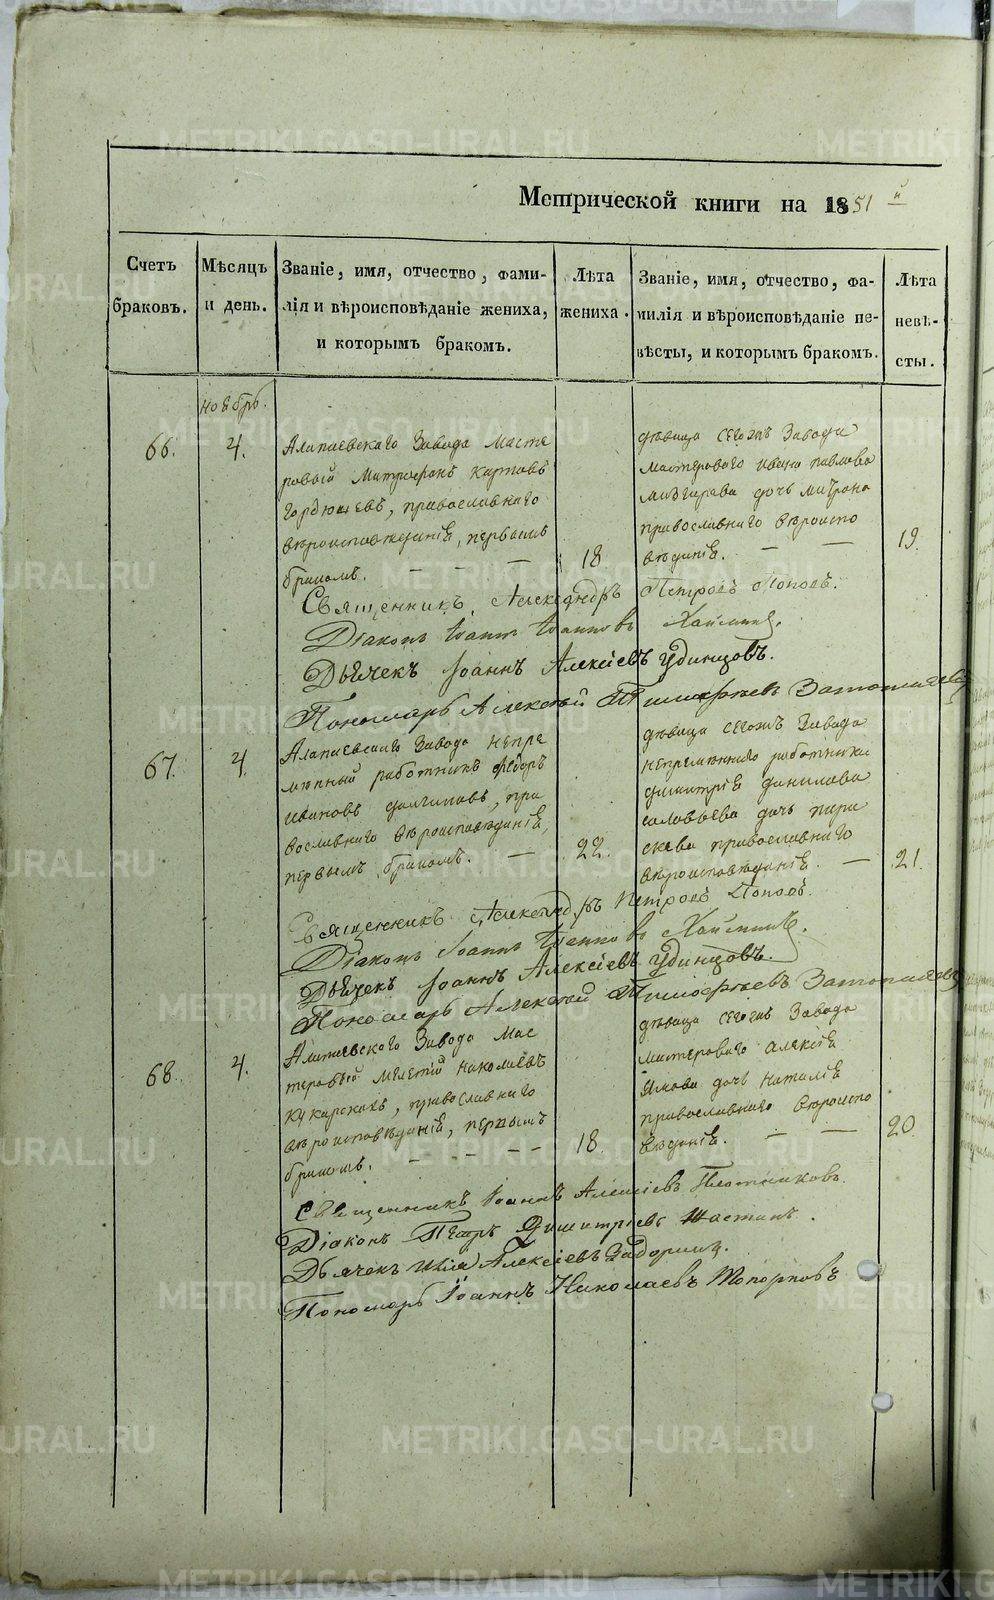 Метрической книги на 1851 й
Счетъ браковъ.
Мѣсяцъ и день.
Званіе, имя, отчество, фами-
лія и вѣроисповѣданіе жениха,
и которымъ бракомъ.
Лѣта жениха.
Званіе, имя, отчество, фа-
милія и вѣроисповѣданіе не-
вѣсты, и которымъ бракомъ.
Лѣта невѣ-
сты.
ноябрь.
66.
4.
Алапаевскаго Завода Масте
ровый Митрофанъ Карповъ
Гордюшевъ, православнаго
вѣроисповѣданія, первымъ
бракомъ. — — —
18
дѣвица сегожъ Завода
мастероваго Ивана Павлова
Мизгирева дочь Матрона
православнаго вѣроиспо
вѣданія. — —
19.
Священникъ Александръ Петровъ Поповъ.
Діаконъ Іоаннъ Іоанновъ
Дьячекъ Іоаннъ Алексіевъ Удинцовъ.
Пономарь Алексѣй Тимофѣевъ
67.
4.
Алапаевскаго Завода Непре
мѣнный работникъ Ѳедоръ
Ивановъ пра
вославнаго вѣроисповѣданія,
первымъ бракомъ. —
22.
дѣвица сегожъ Завода
непремѣннаго работника
Димитрія Данилова
Соловьева дочь Пара
скева православнаго
вѣроисповѣданія. —
21.
Священникъ Александръ Петровъ Поповъ.
Діаконъ Іоаннъ Іоанновъ
Дьячекъ Іоаннъ Алексіевъ Удинцовъ.
Пономарь Алексѣй Тимофѣевъ
68.
4.
Алапаевского Завода Мас
теровый Мелетій Николаевъ
Кукарскихъ, православнаго
вѣроисповѣданія, первымъ
бракомъ. — — — —
18.
дѣвица сегожъ Завода
мастероваго Алексія
Ямова дочь Наталія
православнаго вѣроиспо
вѣданія. — —
20
Священникъ Іоаннъ Алексіевъ Плотниковъ.
Діаконъ Петръ Димитріевъ
Дьячекъ Илія Алексіевъ Задоринъ.
Пономарь Іоаннъ Николаевъ Топорковъ
METRIKI.GASO-URAL.RU